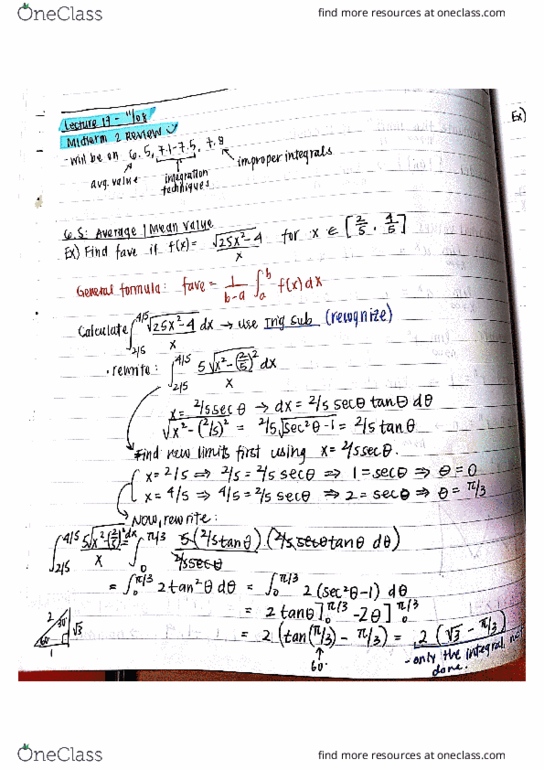 OneClass
find more resources at oneclass.com
Lecture 17 - 11/08
Midterm 2 Review
- will be on 6.5, 7.1-7.5, 7.8
avg. value
integration techniques
improper integrals
Ex)
6.5: Average | Mean value
Ex) Find fave if f(x) = √25x²-4 / x for x ∈ [2/5, 4/5]
General formula: fave = 1/(b-a) ∫_a^b f(x) dx
Calculate ∫_{2/5}^{4/5} √25x²-4 / x dx → use trig sub (recognize)
• rewrite: ∫_{2/5}^{4/5} 5√x²-(2/5)² / x dx
x = 2/5 secθ → dx = 2/5 secθ tanθ dθ
√x²-(2/5)² = 2/5√sec²θ-1 = 2/5 tanθ
Find new limits first using x = 2/5 secθ.
x = 2/5 ⇒ 2/5 = 2/5 secθ ⇒ 1 = secθ ⇒ θ = 0
x = 4/5 ⇒ 4/5 = 2/5 secθ ⇒ 2 = secθ ⇒ θ = π/3
Now, rewrite:
∫_{2/5}^{4/5} 5√x²-(2/5)² / x dx = ∫_0^{π/3} 5(2/5 tanθ) / 2/5 secθ (2/5 secθ tanθ dθ)
= ∫_0^{π/3} 2tan²θ dθ = ∫_0^{π/3} 2(sec²θ-1) dθ
= 2tanθ]_0^{π/3} - 2θ]_0^{π/3}
= 2(tan(π/3) - π/3) = 2(√3 - π/3)
2 30° √3
60° 1
60°
- only the integral
done.
OneClass
find more resources at oneclass.com